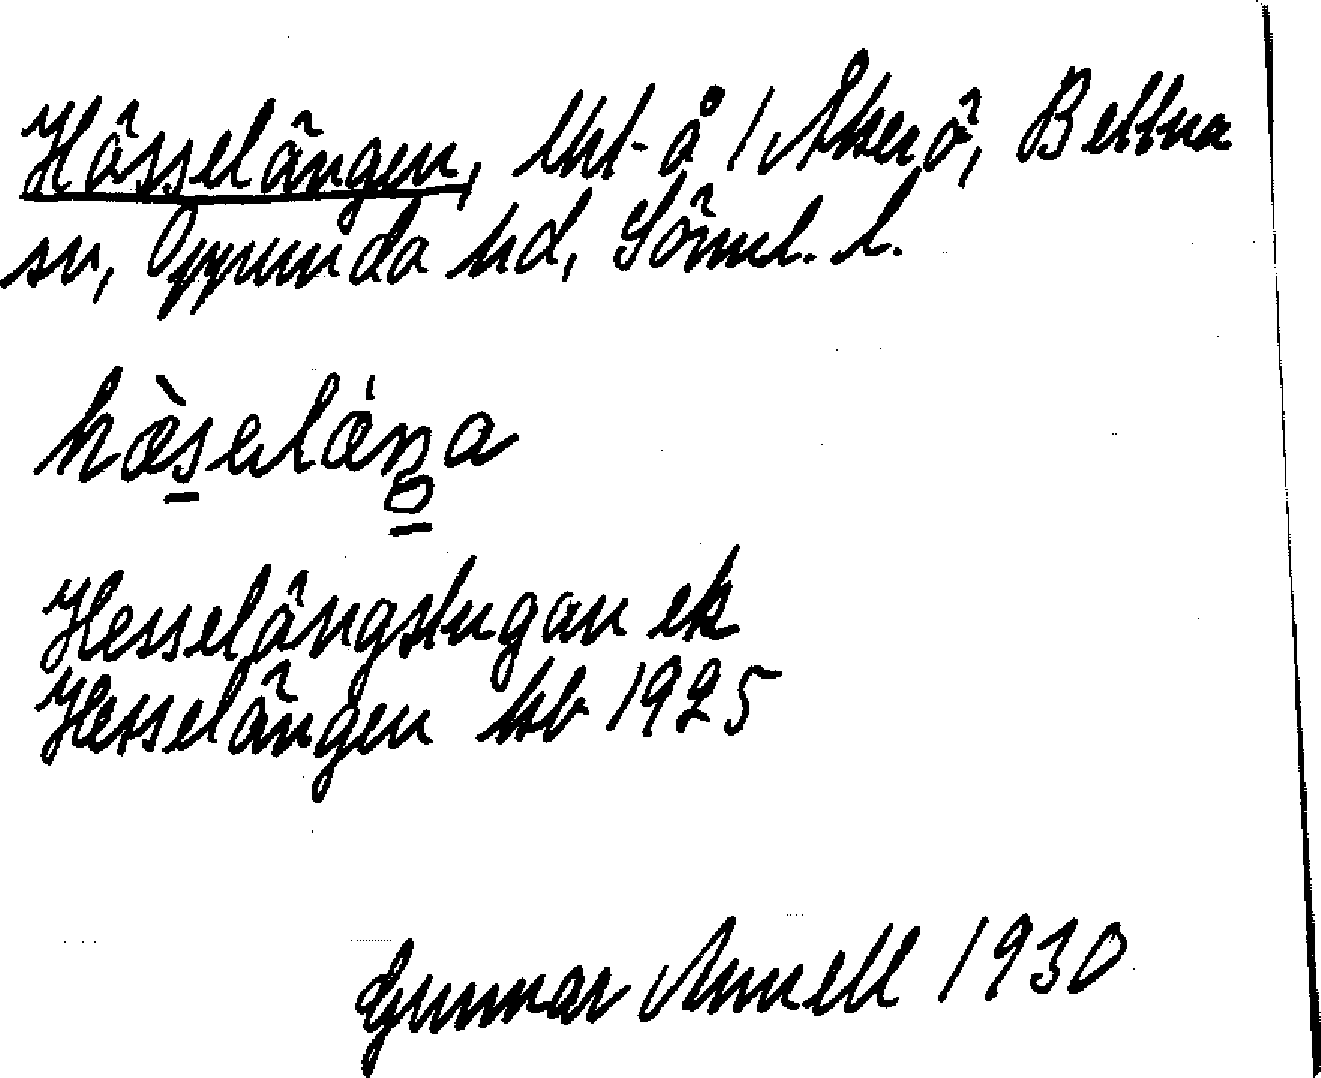 Hässelängen, tkt å 1 Åkerö, Bettna
sn, Oppunda hd, Söml. l.
hæ̀selæ̀ŋa
Hesselängstugan ek
Hesselängen kb 1925
Gunnar Annell 1930